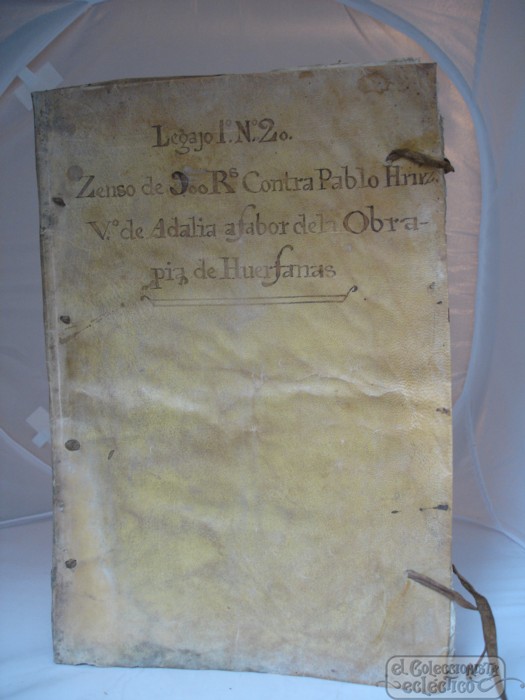 Legajo 1º. Nº. 20.
Zenso de 300 Rˢ Contra Pablo Hrnz.
V.º de Adalia afabor dela Obra-
pia de Huerfanas
el Coleccionista
ecléctico